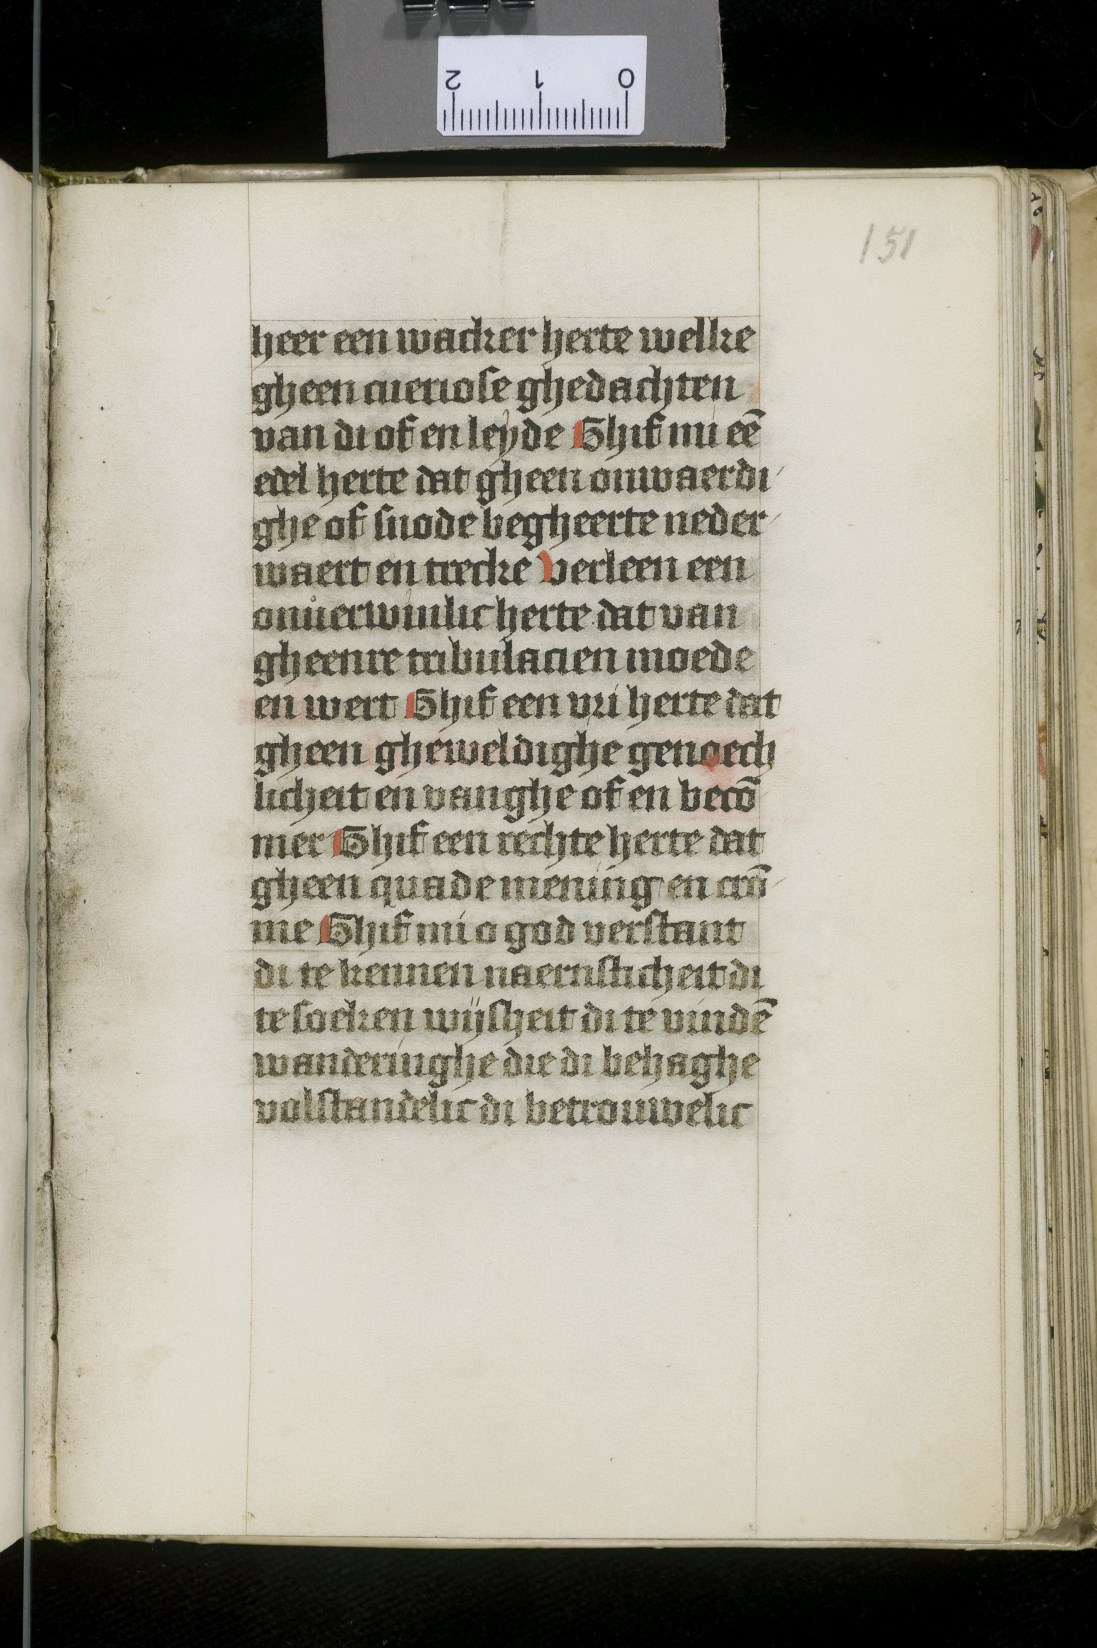 2 1 0
151
heer een wacker herte welke
gheen cueriose ghedachten
van di of en leyde Ghif mi eē
edel herte dat gheen onwaerdi
ghe of snode begheerte neder
waert en trecke Verleen een
onuerwinlic herte dat van
gheenre tribulacien moede
en wert Ghif een vri herte dat
gheen gheweldighe genoech
licheit en vanghe of en becō
mer Ghif een rechte herte dat
gheen quade mening en crō
me Ghif mi o god verstant
di te kennen naernsticheit di
te soeken wijsheit di te vindē
wanderinghe die di behaghe
volstandelic di betrouwelic